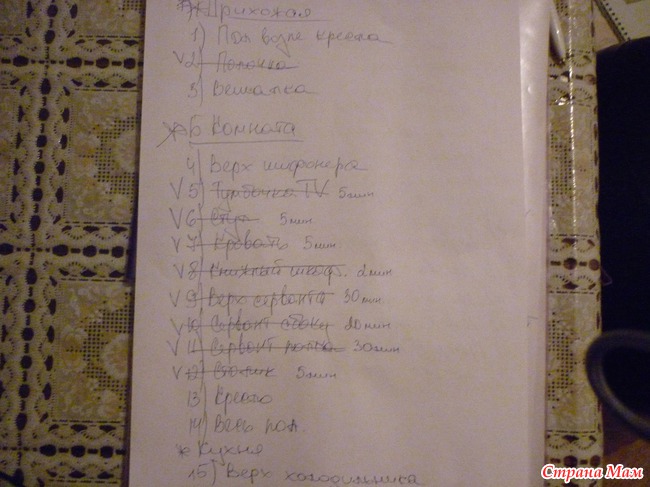 Прихожая
1) Пол возле кресла
V 2 Полочка
3) Вешалка
Б Комната
4) Верх шифонера
V 5) Тумбочка TV 5 мин
V 6 Стул 5 мин
V 7 Кровать 5 мин
V 8 Книжный шкаф. 2 мин
V 9 Верх серванта 30 мин.
V 10 Сервант сбоку 20 мин
V 11 Сервант полка 30 мин
V 12 Столик 5 мин
13) Кресло
14) Весь пол.
* Кухня
15) Верх холодильника
Страна Мам